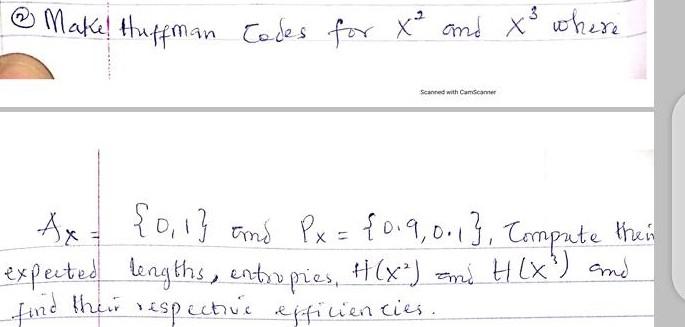 ② Make Huffman Codes for X² and X³ where
Scanned with CamScanner
Ax = {0,1} and Px = {0.9,0.1}, Compute their
expected lengths, entropies, H(X²) and H(X³) and
find their respective efficiencies.